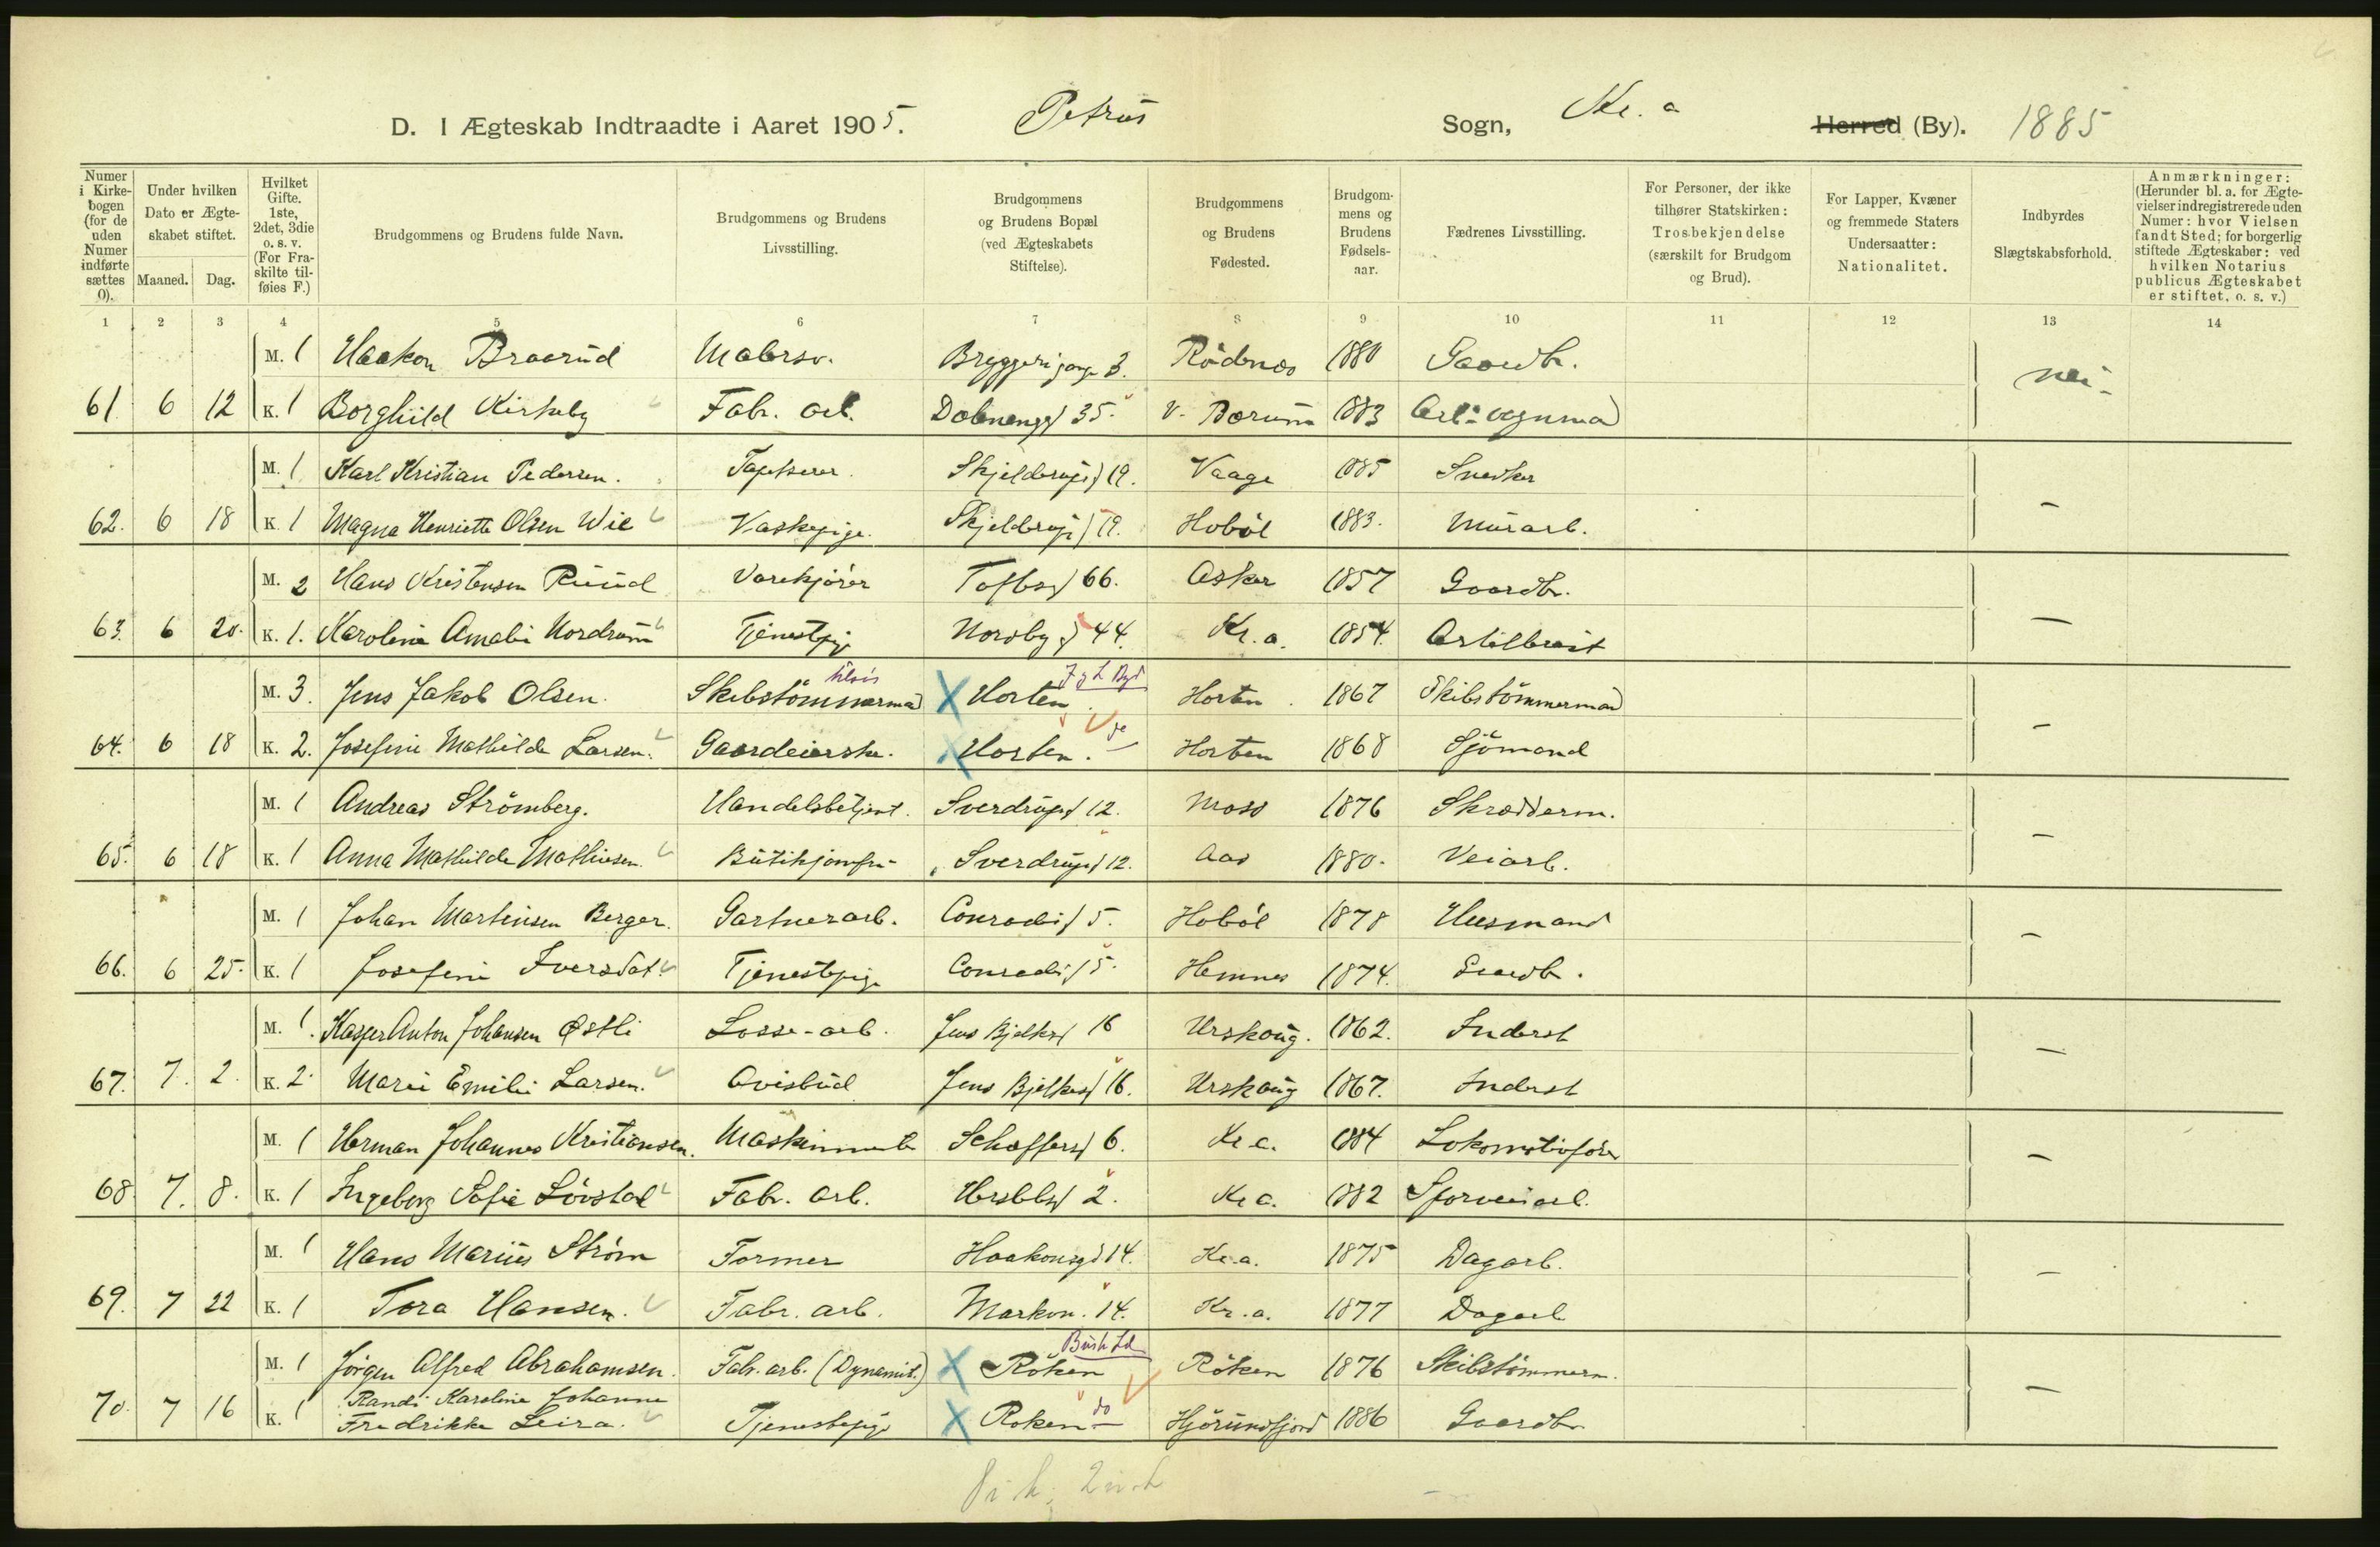 D. I Ægteskab Indtraadte i Aaret 1905. Petrus Sogn, Kr. a Herred (By). 1885
Numer i Kirkebogen (for de uden Numer indførte sættes 0).
Under hvilken Dato er Ægteskabet stiftet.
Maaned. Dag.
Hvilket Gifte. 1ste, 2det, 3die o. s. v. (For Fraskilte tilføies F.)
Brudgommens og Brudens fulde Navn.
Brudgommens og Brudens Livsstilling.
Brudgommens og Brudens Bopæl (ved Ægteskabets Stiftelse).
Brudgommens og Brudens Fødested.
Brudgommens og Brudens Fødselsaar.
Fædrenes Livsstilling.
For Personer, der ikke tilhører Statskirken: Trosbekjendelse (særskilt for Brudgom og Brud).
For Lapper, Kvæner og fremmede Staters Undersaatter: Nationalitet.
Indbyrdes Slægtskabsforhold.
Anmærkninger: (Herunder bl. a. for Ægtevielser indregistrerede uden Numer: hvor Vielsen fandt Sted; for borgerlig stiftede Ægteskaber: ved hvilken Notarius publicus Ægteskabet er stiftet, o. s. v.)
1 2 3 4 5 6 7 8 9 10 11 12 13 14
M. 1 Haakon Braarud Malersv. Bryggerigang 3. Rödnes 1880 Gaardb. nei -
61 6 12 K. 1 Borghild Kirkeby Fabr. arb. Dalenengg 35. V. Bærum 1883
M. 1 Karl Kristian Pedersen. Tapetserer. Skjeldrups 19. Vaage 1885 Snedker -
62. 6 18 K. 1 Magna Henriette Olsen Wie Vaskepige. Skjeldrups 19. Hoböl 1883. Murarb.
M. 2 Hans Kristensen Ruud Varekjörer Toftesg 66. Asker 1857 Gaardb. -
63. 6 20. K. 1. Karoline Amalie Nordrum Tjenestpig Norbyg 44. Kr. a. 1854.
M. 3. Jens Jakob Olsen. Skibstömmermd Horten Horten. 1867 Skibstömmermand -
64. 6 18 K. 2. Josefine Mathilde Larsen. Gaardeierske. Horten. Horten 1868 Sjömand
M. 1 Andreas Strömberg. Handelsbetjent. Sverdrupsg 12. Moss 1876 Skrædderm. -
65. 6 18 K. 1 Anna Mathilde Mathisen. Butikjomfru Sverdrupsg 12. Aas 1880. Veiarb.
M. 1 Johan Martinsen Berger. Gartnerarb. Conradis 5. Hoböl 1878 Husmand -
66. 6 25. K. 1 Josefine Iversdat. Tjenestepige Conradis 5. Hemnes 1874. Gaardb.
M. 1. Kasper Anton Johansen Østli Losse-arb. Jens Bjelkesg 16 Urskoug. 1862. Inderst -
67. 7. 2. K. 2. Marie Emilie Larsen. Avisbud Jens Bjelkesg 16. Urskoug 1867. Inderst
M. 1 Herman Johannes Kristiansen. Schaffersg 6. Kr a. 1884 Lokomotivförer -
68 7. 8. K. 1 Ingeborg Sofie Lövstad Fabr. arb. Herslebsg 2. Kr a. 1882 Sporveiarb.
M. 1 Hans Marius Ström Former Haakonsgd 14. Kr. a. 1875 Dagarb. -
69. 7 22 K. 1 Tora Hansen. Fabr. arb. Markvn. 14. Kr. a. 1877 Dagarb
M. 1 Jörgen Alfred Abrahamsen. Fabr. arb. (Dynamit.) Röken Röken 1876 Skibstömmerm. -
Randi Karoline Johanne
70. 7 16 K. 1 Fredrikke Leira. Tjenestepige Röken do Hjörundfjord 1886 Gaardb.